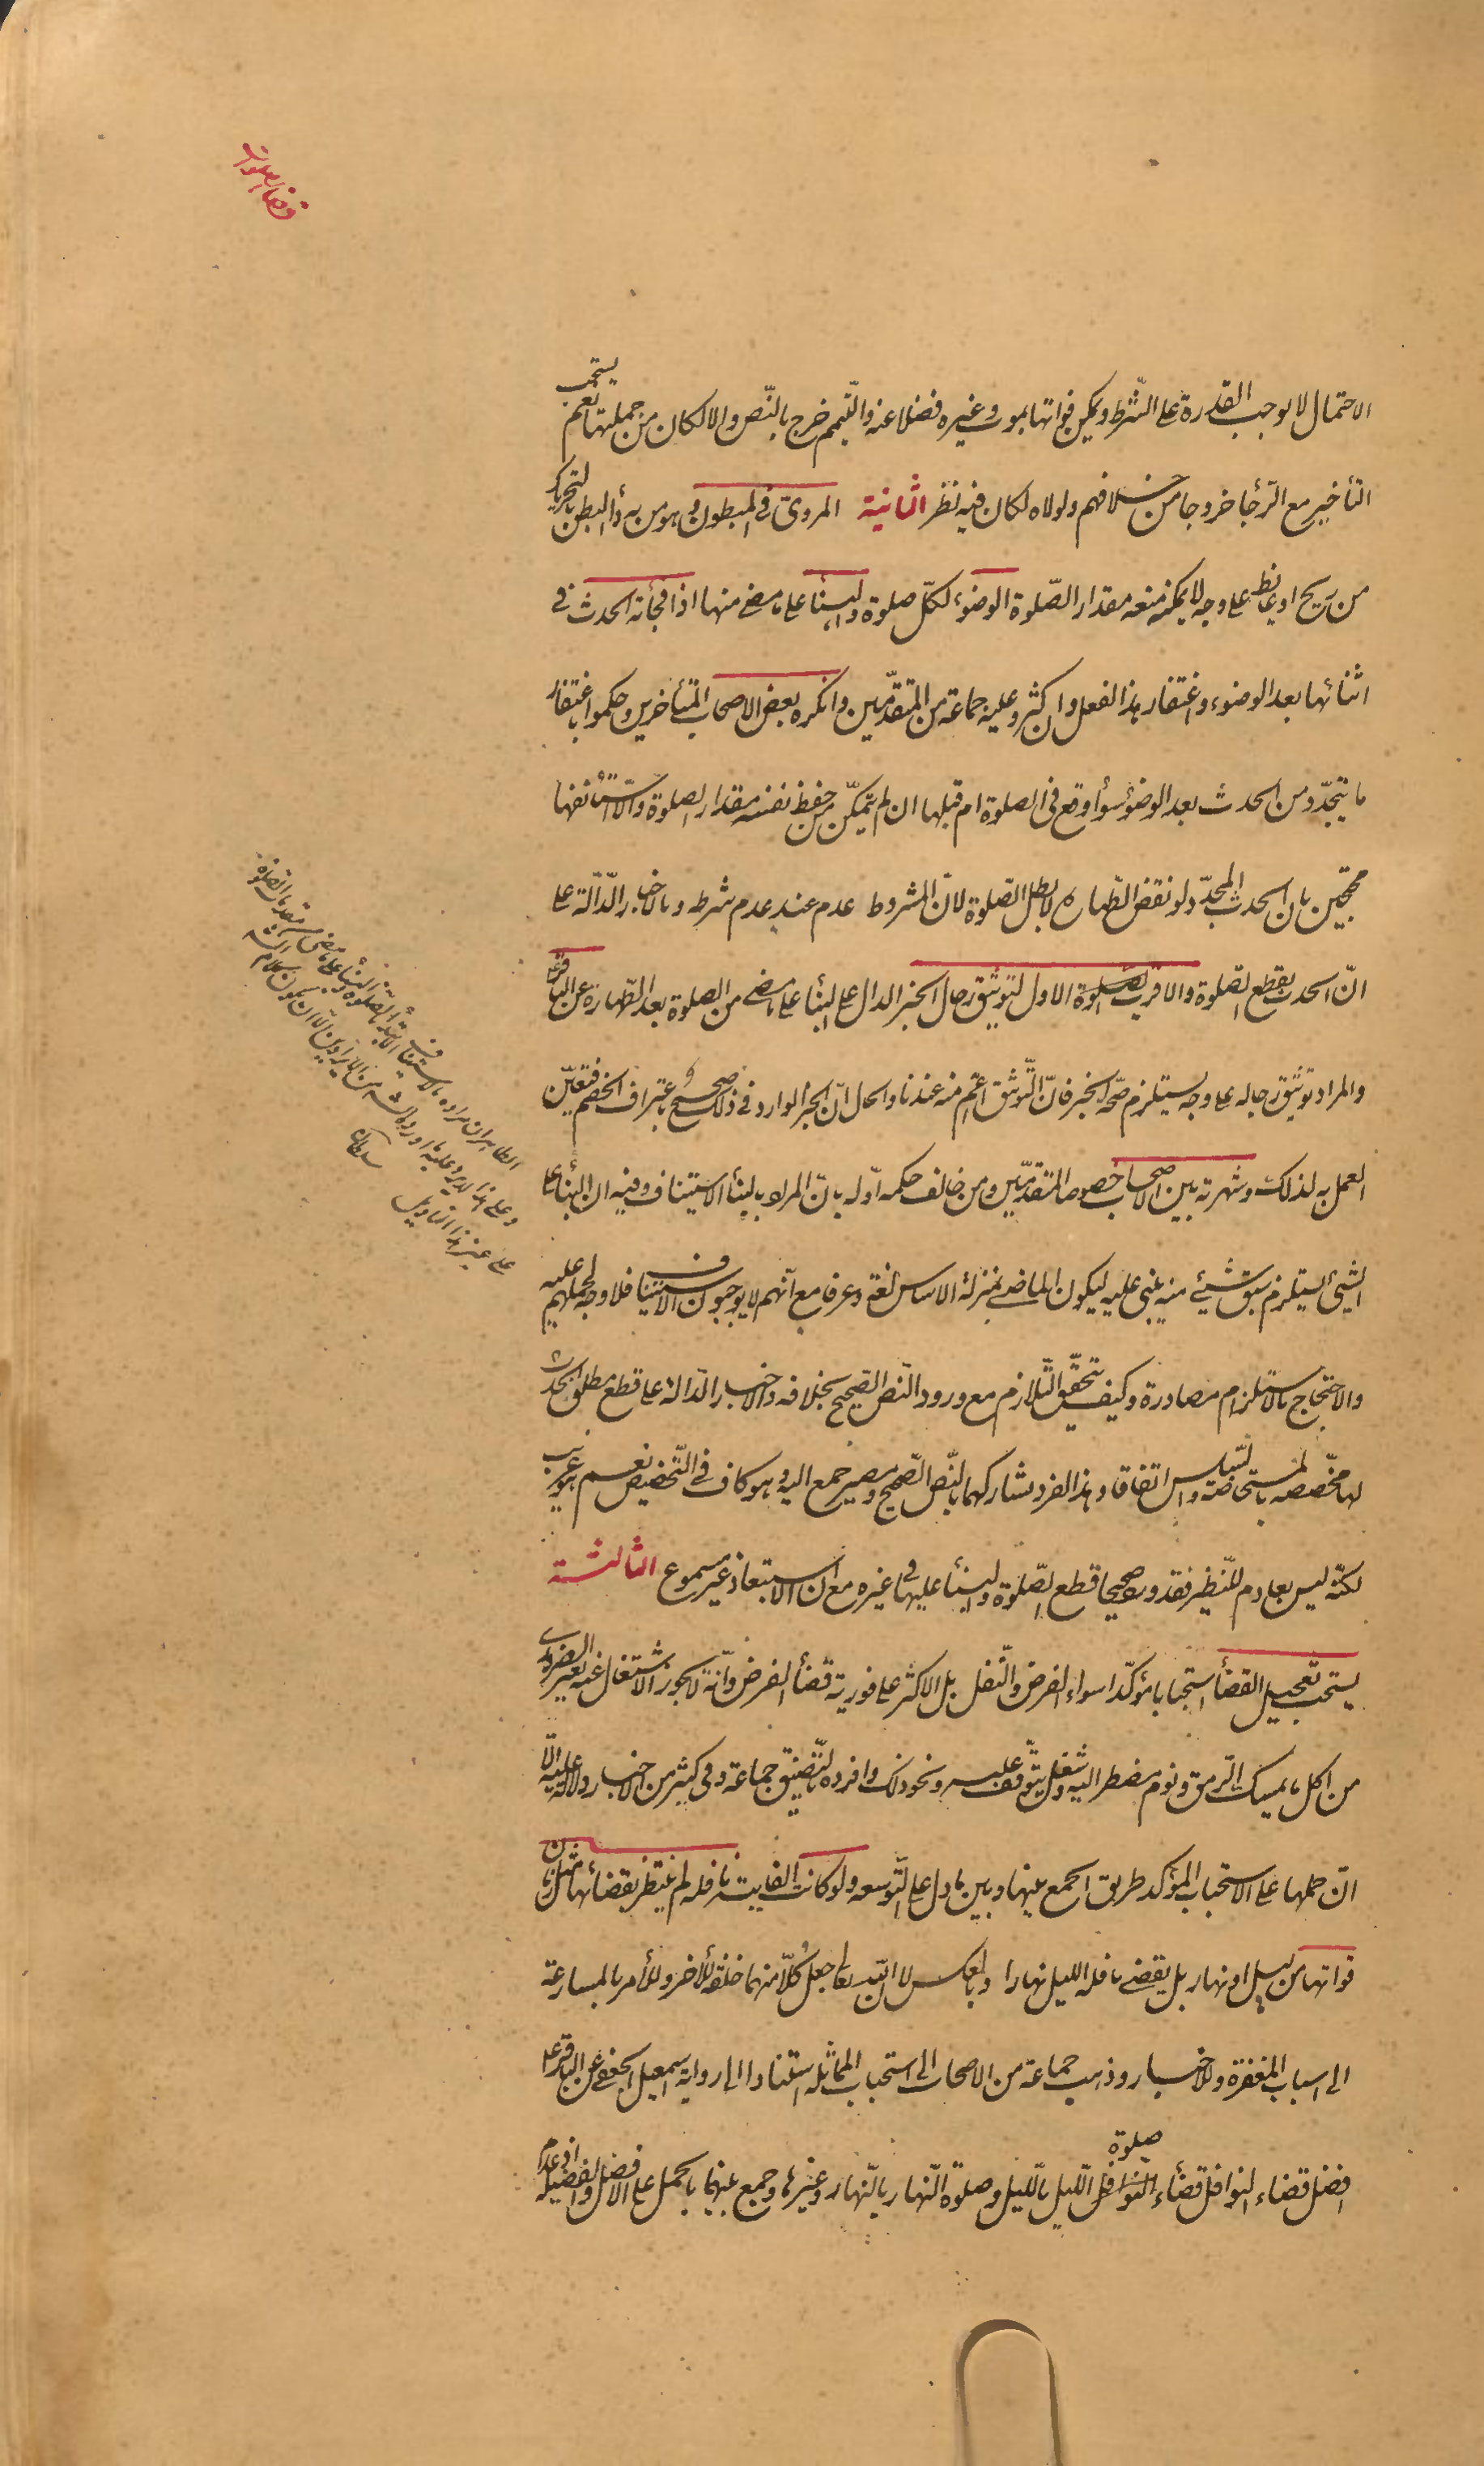 قضاء الصلوات
الاحتمال لا يوجب القدرة على الشّرط ويمكن فواتها بموت وغيره فضلا عنه والتّيمم خرج بالنّص والا لكان من جملتها نعم يستحب
التأخير مع الرّجاء خروجا من خلافهم ولولاه لكان فيه نظر الثانية المروىّ في المبطون وهو من به داء البطن بالتحريك
من ريح او غايط على وجه لا يمكنه منعه مقدار الصّلوة الوضوء لكلّ صلوة والبناء على ما مضى منها اذا فجأته الحدث في
اثنائها بعد الوضوء واغتفار هذا الفعل وان كثر وعليه جماعة من المتقدّمين وانكره بعض الاصحاب المتأخرين وحكموا باغتفار
ما يتجدّد من الحدث بعد الوضوء سواء وقع فى الصلوة ام قبلها ان لم يتمكّن من حفظ نفسه مقدار الصلوة والا استأنفها
محتجّين بان الحدث المتجدّد لو نقض الطّهارة لابطل الصّلوة لانّ المشروط عدم عند عدم شرطه وبالاخبار الدّالّة على
انّ الحدث يقطع الصلوة والاقرب الاول لتوثيق رجال الخبر الدال على البناء على ما مضى من الصلوة بعد الطّهارة عن الباقر ع
والمراد توثيق رجاله على وجه يستلزم صحّة الخبر فانّ التّوثيق اعمّ منه عندنا والحال انّ الخبر الوارد في ذلك صحيح باعتراف الخصم فتعيّن
العمل به لذلك وشهرته بين الاصحاب خصوصا المتقدّمين ومن خالف حكمه اوّله بانّ المراد بالبناء الاستيناف وفيه ان البناء على
الشيئ يستلزم سبق شيئ منه يبنى عليه ليكون الماضى بمنزلة الاساس لغة وعرفا مع انّهم لا يوجبون الاستيناف فلا وجه لحملهم عليه
والاحتجاج بالاستلزام مصادرة وكيف يتحقّق التّلازم مع ورود النّص الصّحيح بخلافه والاخبار الدّالة على قطع مطلق الحدث
لها مخصّصه بالمستحاضة والسّلس اتفاقا وهذا الفرد يشاركهما بالنّص الصّحيح ومصير جمع اليه وهو كاف في التّخصيص نعم هو غريب
لكنّه ليس بعادم للنّظير فقد ورد صحيحا قطع الصّلوة والبناء عليها في غيره مع ان الاستبعاد غير مسموع الثالثة
يستحب تعجيل القضاء استحبابا مؤكّدا سواء الفرض والنّفل بل الاكثر على فورية قضاء الفرض وانّه لا يجوز الاشتغال عنه بغير الضرورى
من اكل ما يمسك الرّمق ونوم مضطر اليه وشغل يتوقّف عليه ونحو ذلك وافرده بالتّصنيق جماعة وفى كثير من الاخبار دلالة عليه الّا
انّ حملها على الاستحباب المؤكد طريق الجمع بينها وبين ما دل على التّوسعه ولو كانت الفايته نافله لم ينتظر بقضائها مثل زمان
فواتها من ليل او نهار بل يقضى نافلة الليل نهارا وبالعكس لان اللّه تعالى جعل كُلّا منهما خلفة للأخر وللأمر بالمسارعة
الى اسباب المغفرة وللاخبار وذهب جماعة من الاصحاب الى استحباب المماثله استنادا الى رواية اسمعيل الجعفى عن الباقر ع
افضل قضاء النوافل قضاء صلوة الليل بالّليل وصلوة النّهار بالنّهار وغيرها وجمع بينهما بالحمل على الافضل والفضيلة اذ عدم
الظاهر ان مراده بالاستيناف
وعلى هذا لا يرد عليه ما اورده الشه من الايرادين الّا ان يكون كلامه
على غير هذا التاويل
سلطان